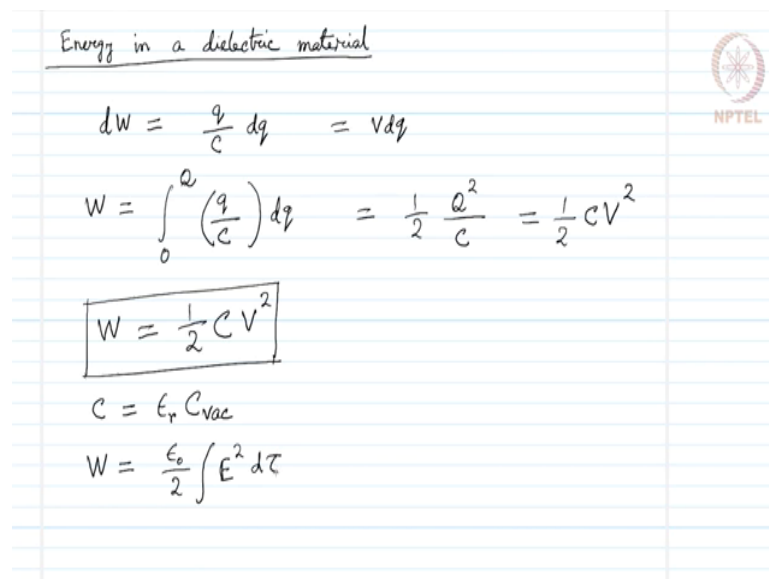 Energy in a dielectric material
NPTEL
dW = q/C dq = Vdq
W = ∫₀^Q (q/C) dq = 1/2 Q²/C = 1/2 CV²
W = 1/2 CV²
C = ϵᵣ Cvac
W = ϵ₀/2 ∫E² dτ